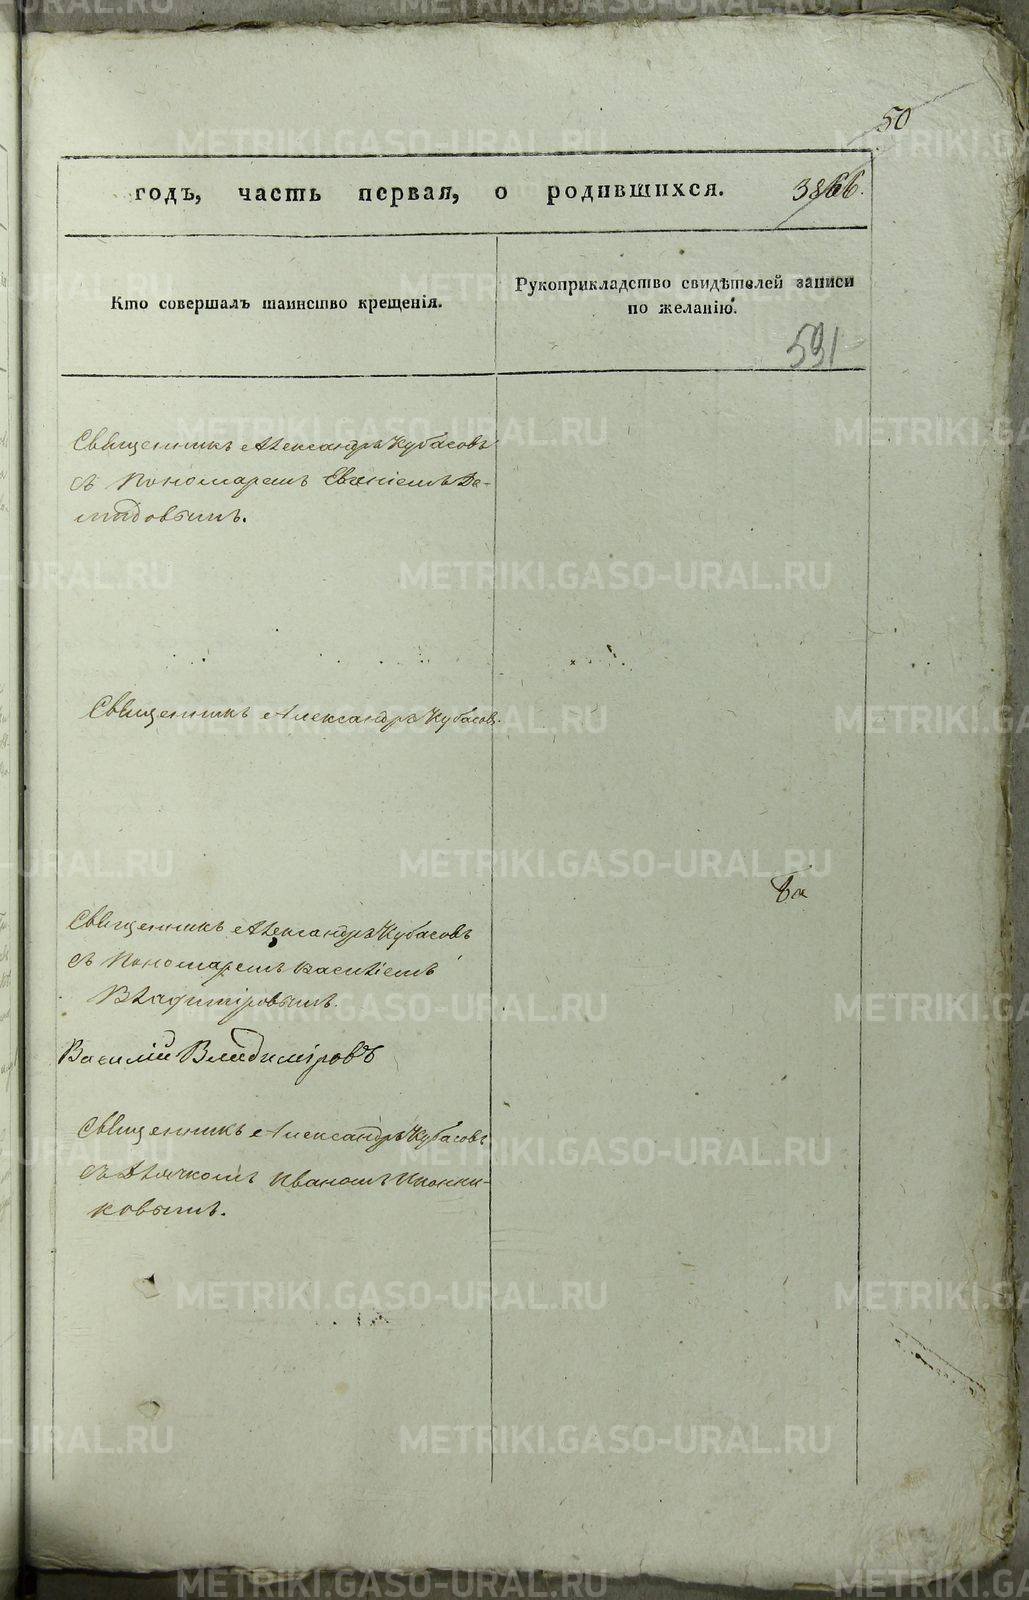 50
годъ, часть первая, о родившихся. 3866.
Кто совершалъ таинство крещенія.
Рукоприкладство свидѣтелей записи
по желанію.
591
Священникъ Александръ Кубасовъ
съ Пономаремъ Евгеніемъ Де-
мидовымъ.
Священникъ Александръ Кубасовъ.
Священникъ Александръ Кубасовъ
съ Пономаремъ Василіемъ
Владиміровымъ.
Василій Владиміровъ
Священникъ Александръ Кубасовъ
съ Дьячкомъ Иваномъ Иконни-
ковымъ.
METRIKI.GASO-URAL.RU